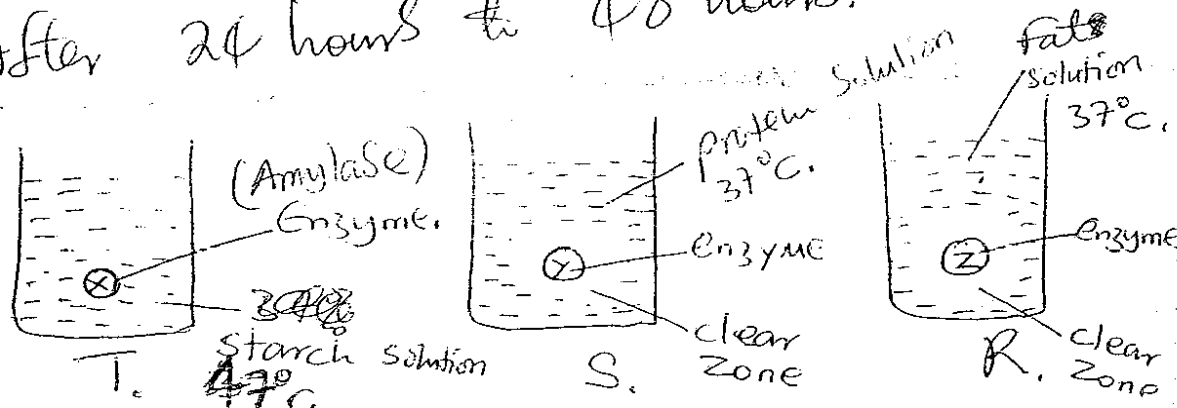 After 24 hours to 48 hours.
(Amylase)
Enzyme.
X
Starch solution
47°C.
T.
Protein solution
37°C.
Y
enzyme
clear
zone
S.
Fats
solution
37°C.
Z
enzyme
clear
zone
R.